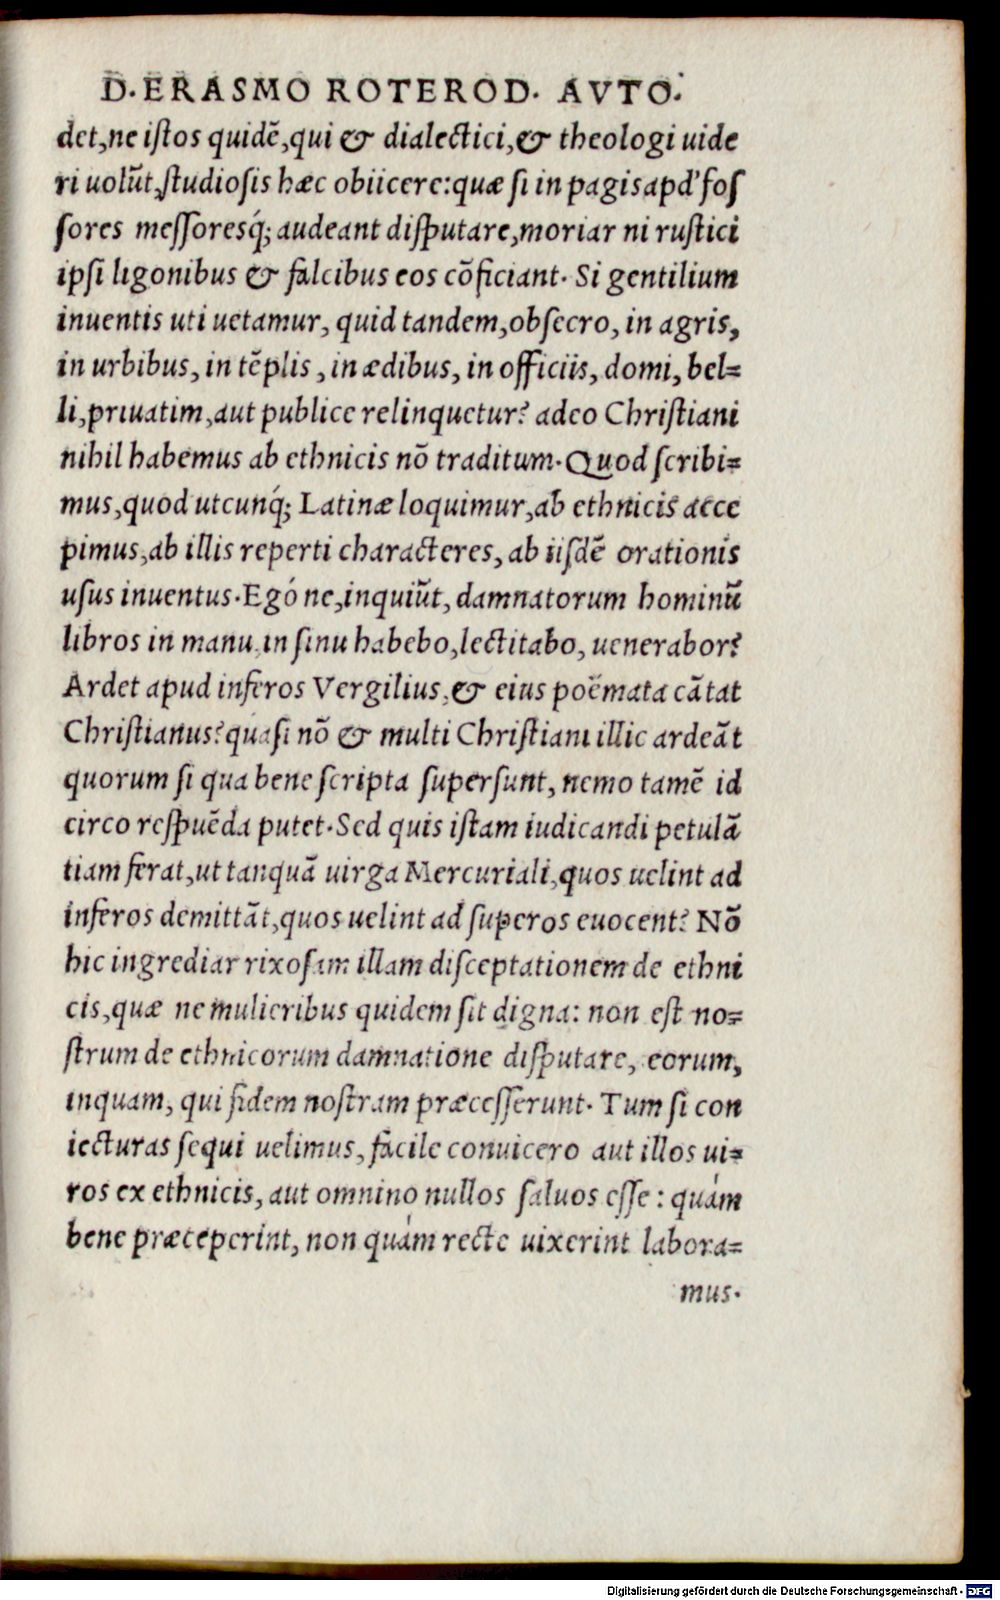 D. ERASMO ROTEROD. AVTO.
det, ne istos quidē, qui & dialectici, & theologi uide
ri uolūt, studiosis hæc obiicere: quæ si in pagis apd' fos
sores messoresq́; audeant disputare, moriar ni rustici
ipsi ligonibus & falcibus eos cōficiant. Si gentilium
inuentis uti uetamur, quid tandem, obsecro, in agris,
in urbibus, in tēplis, in ædibus, in officiis, domi, bel=
li, priuatim, aut publice relinquetur? adeo Christiani
nihil habemus ab ethnicis nō traditum. Quod scribi=
mus, quod utcunq́; Latinæ loquimur, ab ethnicis acce
pimus, ab illis reperti characteres, ab iisdē orationis
usus inuentus. Egóne, inquiūt, damnatorum hominū
libros in manu, in sinu habebo, lectitabo, uenerabor?
Ardet apud inferos Vergilius, & eius poëmata cātat
Christianus? quasi nō & multi Christiani illic ardeāt
quorum si qua bene scripta supersunt, nemo tamē id
circo respuēda putet. Sed quis istam iudicandi petulā
tiam ferat, ut tanquā uirga Mercuriali, quos uelint ad
inferos demittāt, quos uelint ad superos euocent? Nō
hic ingrediar rixosam illam disceptationem de ethni
cis, quæ ne mulieribus quidem sit digna: non est no=
strum de ethnicorum damnatione disputare, eorum,
inquam, qui fidem nostram præcesserunt. Tum si con
iecturas sequi uelimus, facile conuicero aut illos ui=
ros ex ethnicis, aut omnino nullos saluos esse: quám
bene præceperint, non quám recte uixerint labora=
mus.
Digitalisierung gefördert durch die Deutsche Forschungsgemeinschaft - DFG